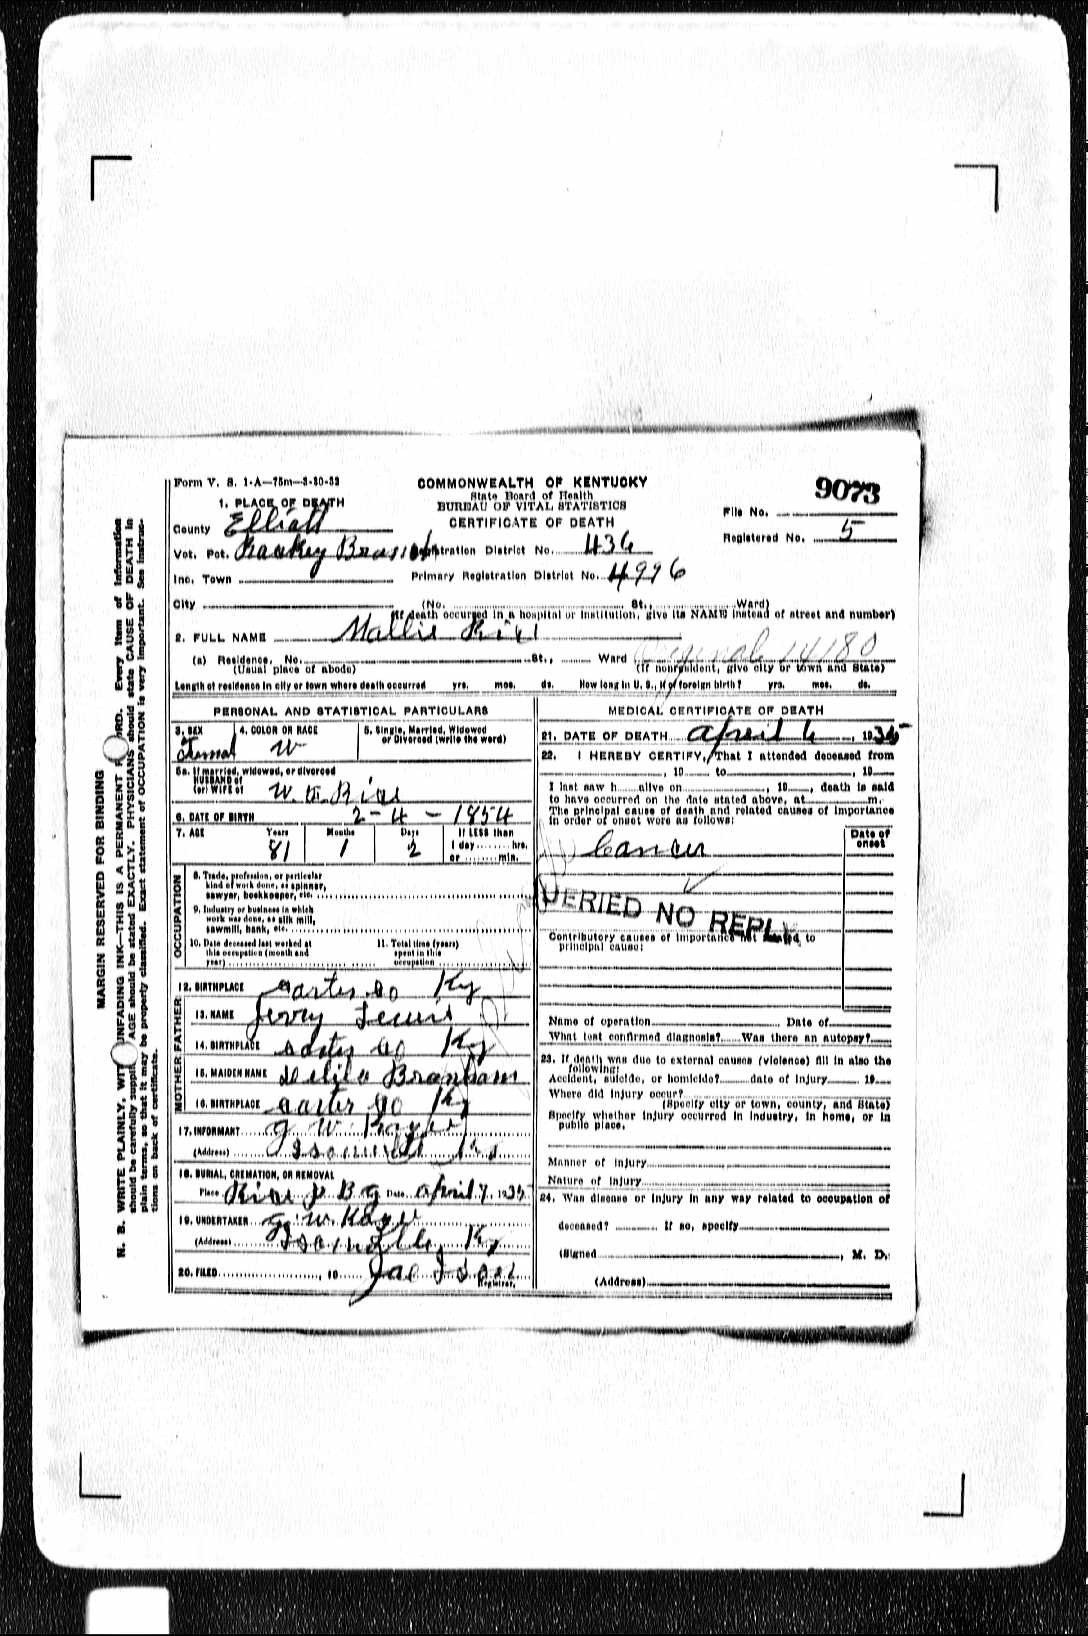 Form V. S. 1-A—75m—3-30-33
COMMONWEALTH OF KENTUCKY
State Board of Health
BUREAU OF VITAL STATISTICS
CERTIFICATE OF DEATH
9073
File No.
Registered No. 5
1. PLACE OF DEATH
County Elliott
Vot. Pct. Branch
Registration District No. 436
Inc. Town
Primary Registration District No. 4996
City (No. St., Ward)
(If death occurred in a hospital or institution, give its NAME instead of street and number)
2. FULL NAME Mallie Rice
(a) Residence, No. St., Ward Original 14180
(Usual place of abode) (If nonresident, give city or town and State)
Length of residence in city or town where death occurred yrs. mos. ds. How long in U. S., if of foreign birth? yrs. mos. ds.
PERSONAL AND STATISTICAL PARTICULARS
3. SEX
Femal
4. COLOR OR RACE
W
5. Single, Married, Widowed
or Divorced (write the word)
5a. If married, widowed, or divorced
HUSBAND of
(or) WIFE of W. Rice
6. DATE OF BIRTH 2-4-1854
7. AGE Years Months Days If LESS than
81 1 2 1 day hrs.
or min.
OCCUPATION
8. Trade, profession, or particular
kind of work done, as spinner,
sawyer, bookkeeper, etc.
9. Industry or business in which
work was done, as silk mill,
sawmill, bank, etc.
10. Date deceased last worked at
this occupation (month and
year)
11. Total time (years)
spent in this
occupation
12. BIRTHPLACE Carter Co Ky
FATHER
13. NAME Jerry Lewis
14. BIRTHPLACE Carter Co Ky
MOTHER
15. MAIDEN NAME Delila Branham
16. BIRTHPLACE Carter Co Ky
17. INFORMANT G. W.
(Address) Isonville Ky
18. BURIAL, CREMATION, OR REMOVAL
Place Rice B G Date April 7, 1935
19. UNDERTAKER G. W.
(Address) Isonville, Ky
20. FILED , 19 Jae Ison
Registrar.
MEDICAL CERTIFICATE OF DEATH
21. DATE OF DEATH April 6, 1935
22. I HEREBY CERTIFY, That I attended deceased from
, 19 to , 19
I last saw h alive on , 19 , death is said
to have occurred on the date stated above, at m.
The principal cause of death and related causes of importance
in order of onset were as follows:
Date of
onset
Cancer
QUERIED NO REPLY
Contributory causes of importance not related to
principal cause:
Name of operation Date of
What test confirmed diagnosis? Was there an autopsy?
23. If death was due to external causes (violence) fill in also the
following:
Accident, suicide, or homicide? date of injury 19
Where did injury occur?
(Specify city or town, county, and State)
Specify whether injury occurred in industry, in home, or in
public place.
Manner of injury
Nature of injury
24. Was disease or injury in any way related to occupation of
deceased? If so, specify
(Signed , M. D.
(Address)
MARGIN RESERVED FOR BINDING
N. B. WRITE PLAINLY, WITH UNFADING INK—THIS IS A PERMANENT RECORD. Every item of information
should be carefully supplied. AGE should be stated EXACTLY. PHYSICIANS should state CAUSE OF DEATH in
plain terms, so that it may be properly classified. Exact statement of OCCUPATION is very important. See instruc-
tions on back of certificate.